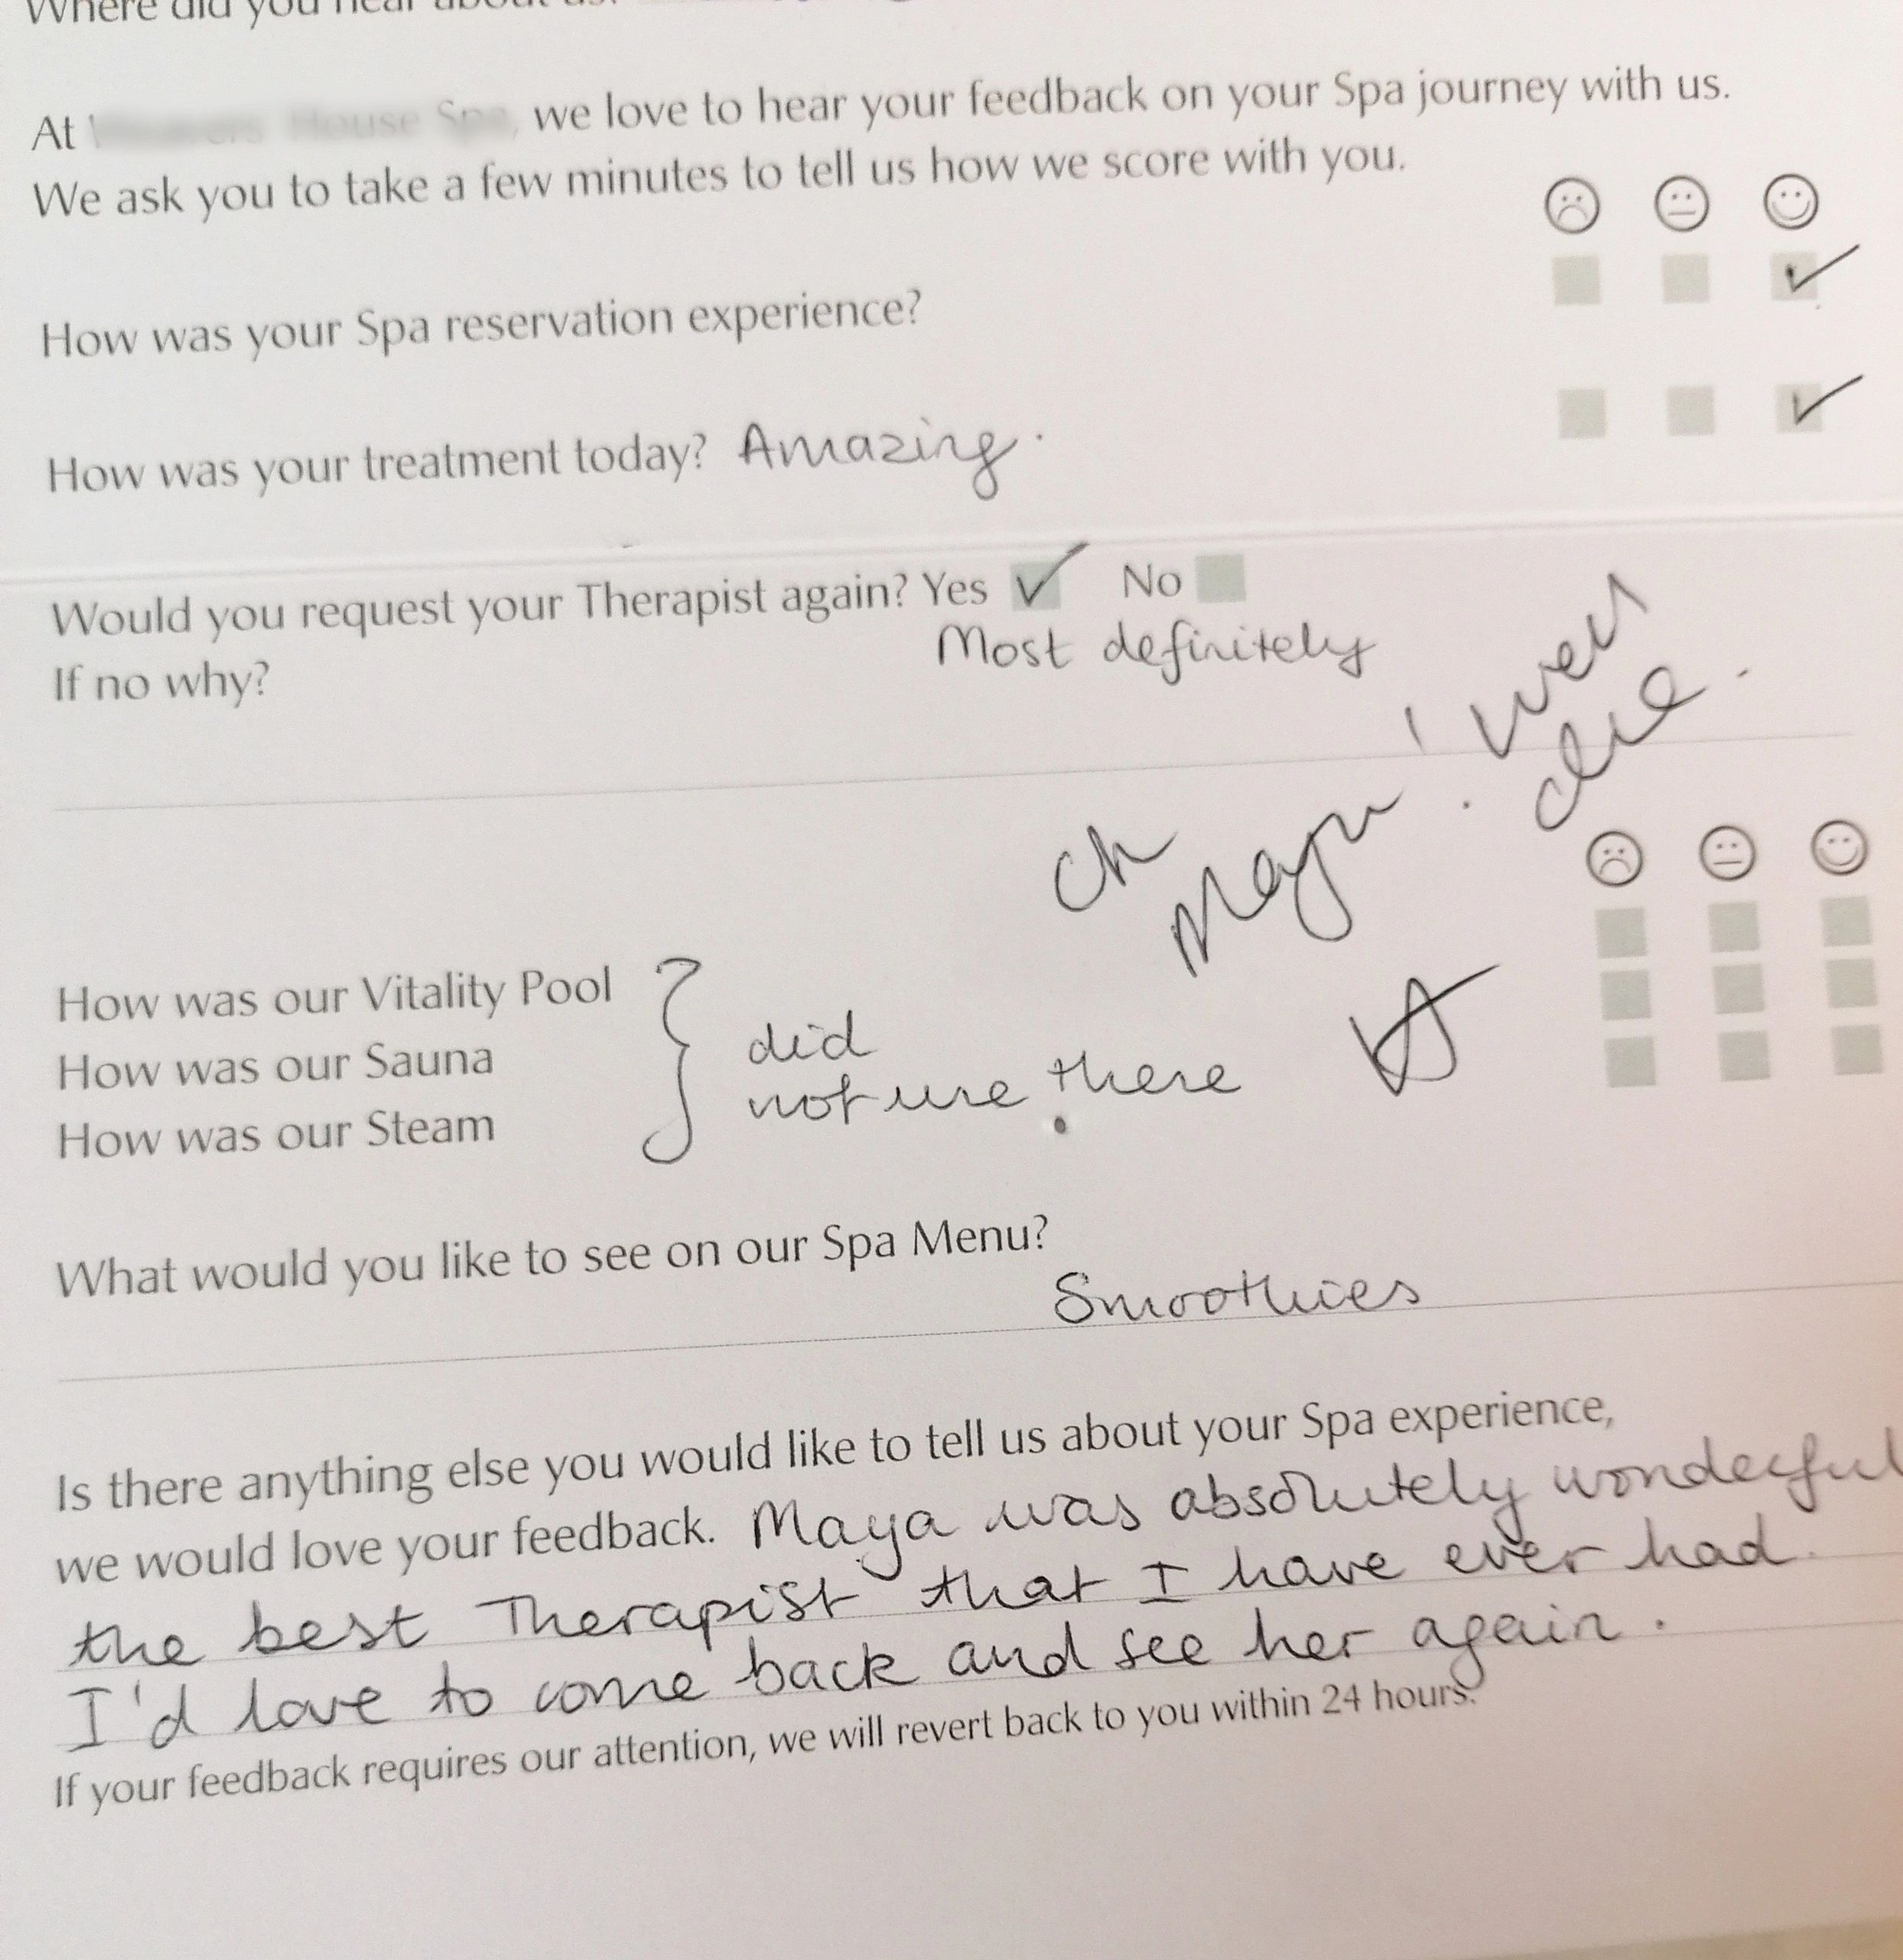 Where did you hear about us?
At House Spa, we love to hear your feedback on your Spa journey with us.
We ask you to take a few minutes to tell us how we score with you.
How was your Spa reservation experience?
How was your treatment today? Amazing.
Would you request your Therapist again? Yes ✓ No
Most definitely
If no why?
well
Maya!
How was our Vitality Pool
How was our Sauna
How was our Steam
did
not use there
What would you like to see on our Spa Menu?
Smoothies
Is there anything else you would like to tell us about your Spa experience,
we would love your feedback. Maya was absolutely wonderful
the best Therapist that I have ever had.
I'd love to come back and see her again.
If your feedback requires our attention, we will revert back to you within 24 hours.